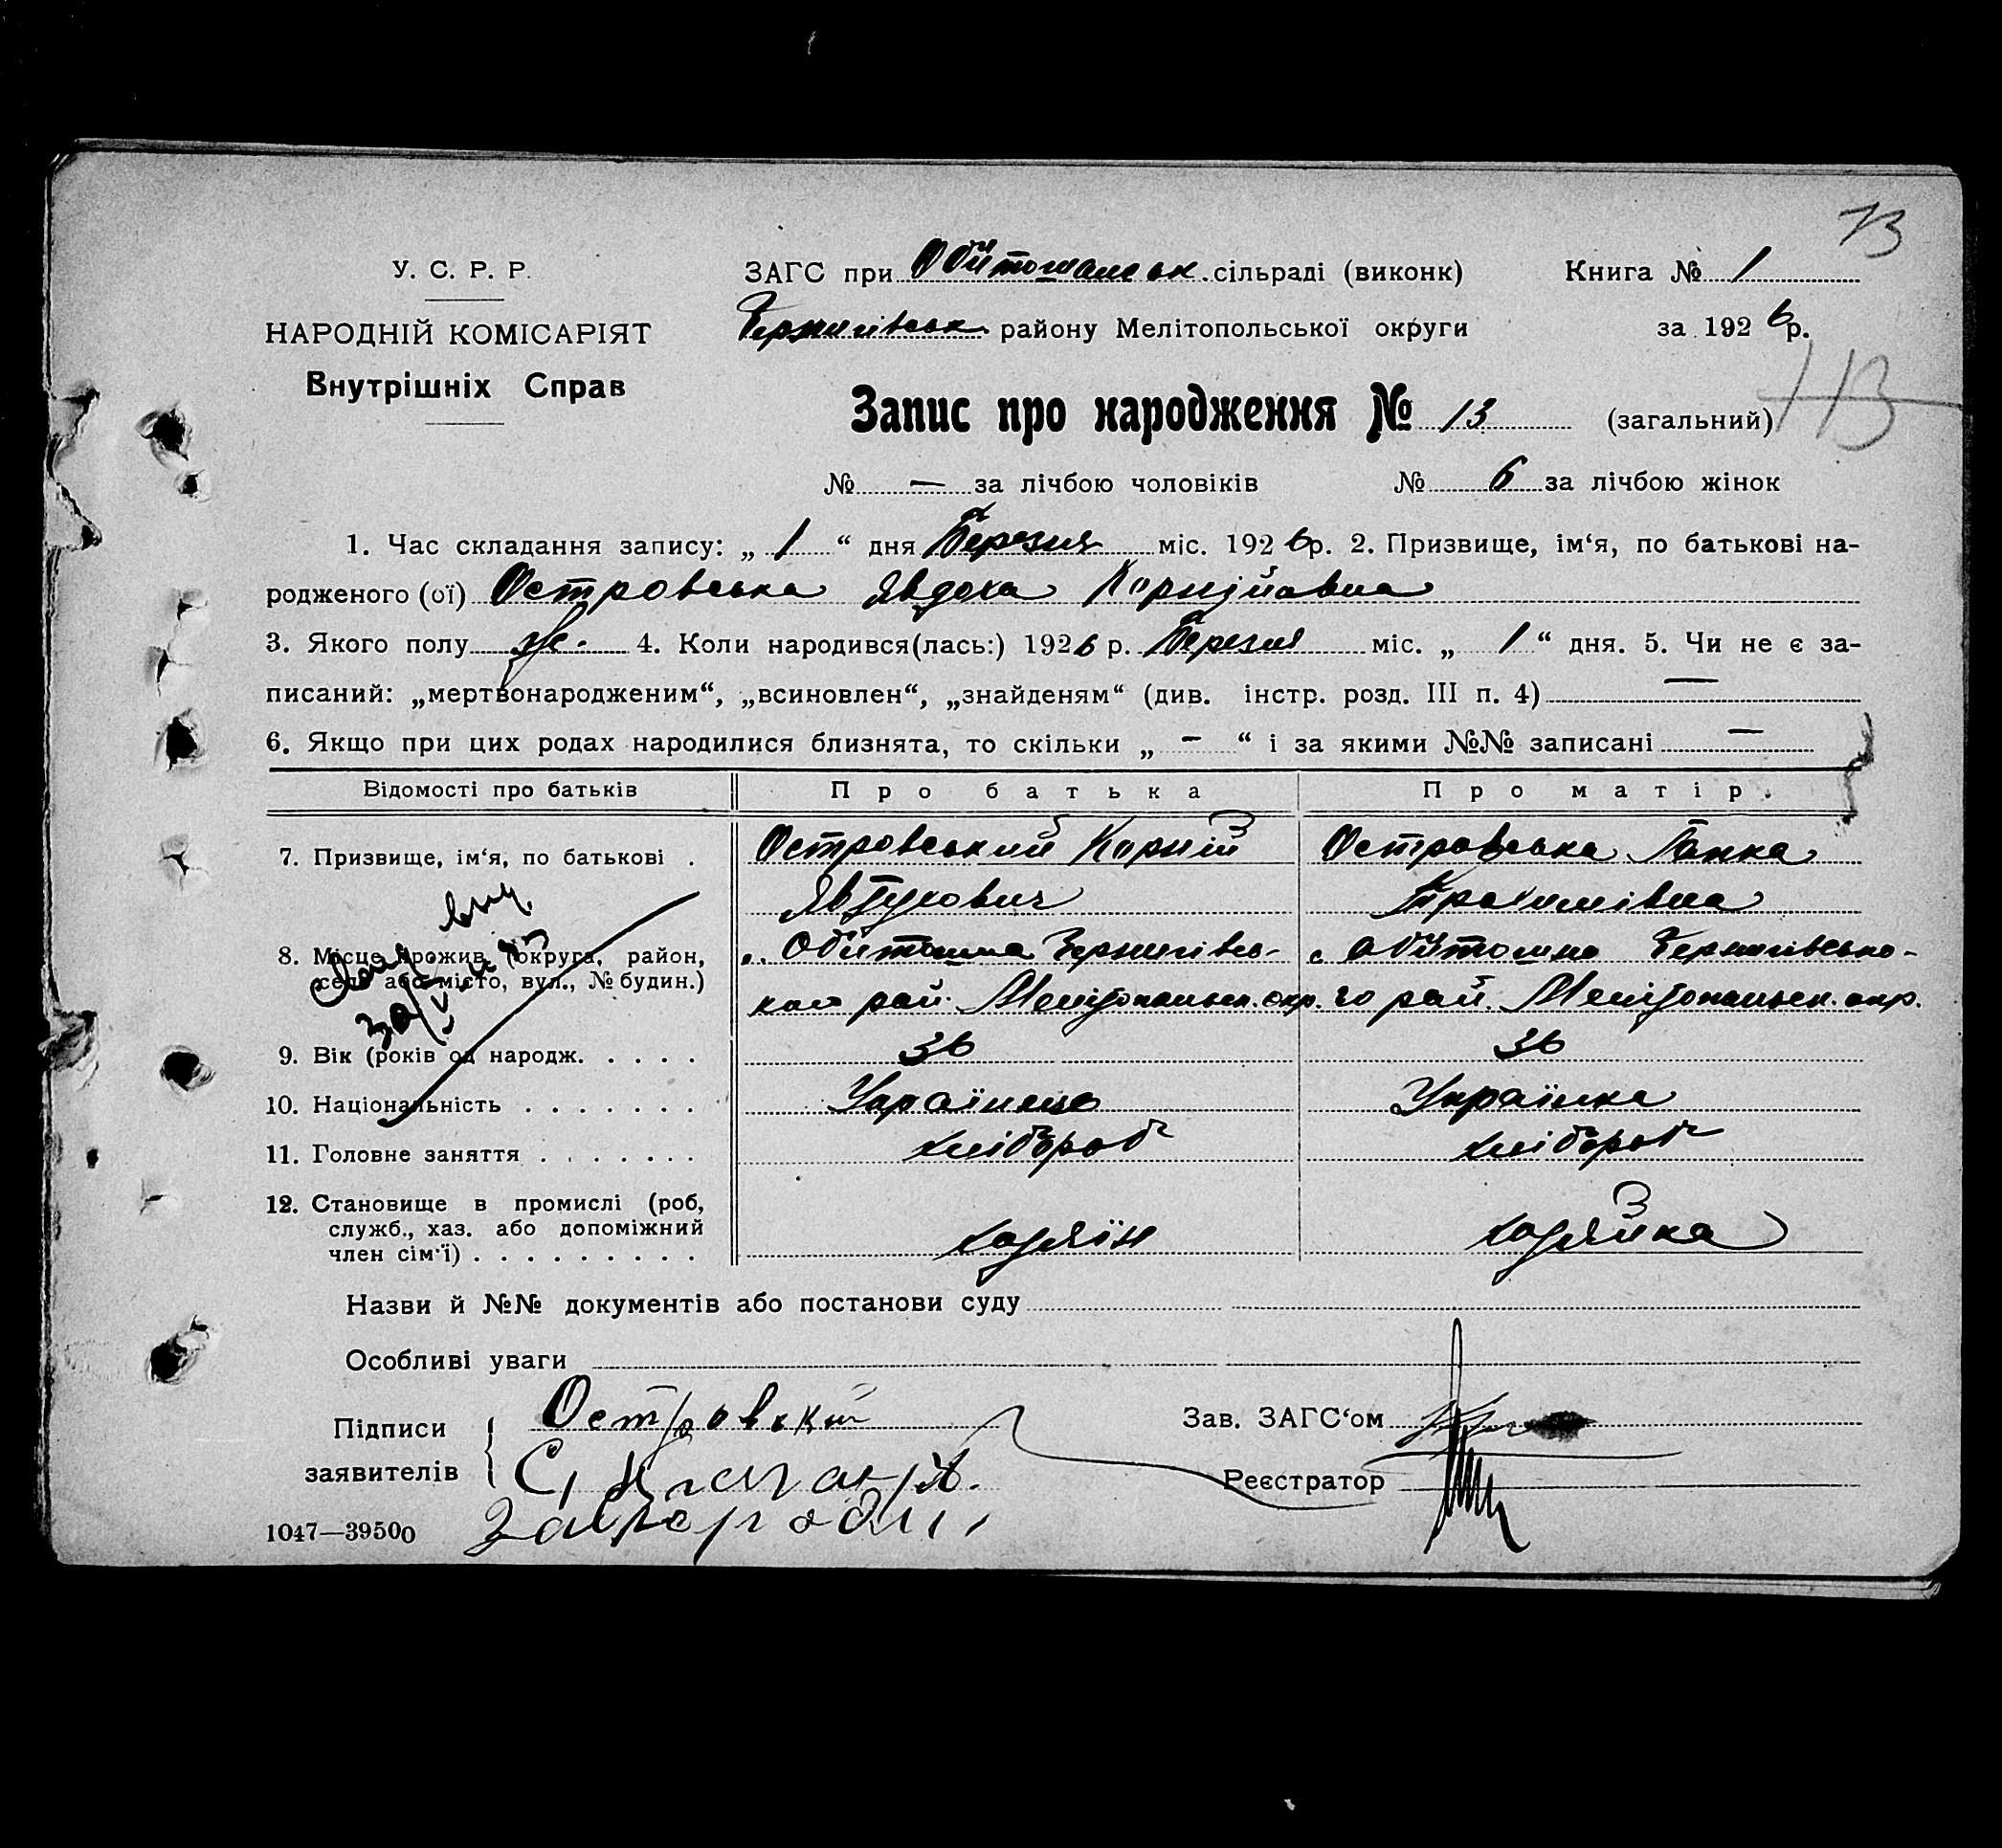 13
У. С. Р. Р.
НАРОДНІЙ КОМІСАРІЯТ
Внутрішніх Справ
ЗАГС при Обіточанськ. сільраді (виконк) Книга № 1
Чернигівськ. району Мелітопольської округи за 1926 р.
Запис про народження № 13 (загальний) 113
№ — за лічбою чоловіків № 6 за лічбою жінок
1. Час складання запису: „ 1 “ дня Березня міс. 1926 р. 2. Призвище, ім‘я, по батькові на-
родженого (ої) Островська Явдоха Корнійовна
3. Якого полу ж. 4. Коли народився(лась:) 1926 р. Березня міс. „ 1 “ дня. 5. Чи не є за-
писаний: „мертвонародженим“, „всиновлен“, „знайденям“ (див. інстр. розд. III п. 4) —
6. Якщо при цих родах народилися близнята, то скільки „ - “ і за якими №№ записані —
Відомості про батьків Про батька Про матір.
7. Призвище, ім‘я, по батькові . Островський Корній Островська Ганка
Явтухович Трохимівна
8. Місце прожив. (округа, район, Чернигівсь- с Чернигівсько-
село або місто, вул., № будин.) рай. Мелітопольськ. окр. го рай. Мелітопольськ. окр.
9. Вік (років од народж. . . . . 36 36
10. Національність . . . . . . . Українець Українка
11. Головне заняття . . . . . . . хлібороб хлібороб
12. Становище в промислі (роб,
служб., хаз. або допоміжний
член сім‘ї) . . . . . . . . . хазяїн хазяйка
Назви й №№ документів або постанови суду
Особливі уваги
Підписи заявителів Островский
Зав. ЗАГС‘ом
Реєстратор
1047—39500